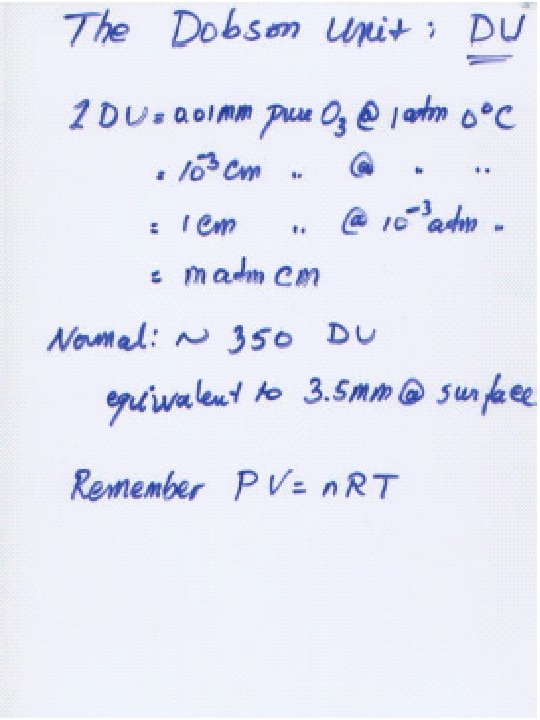 The Dobson Unit: DU
1 DU = 0.01mm pure O₃ @ 1 atm 0°C
= 10⁻³ cm " @ " "
= 1 cm " @ 10⁻³ atm "
= m atm cm
Normal: ~ 350 DU
equivalent to 3.5mm @ surface
Remember PV = nRT